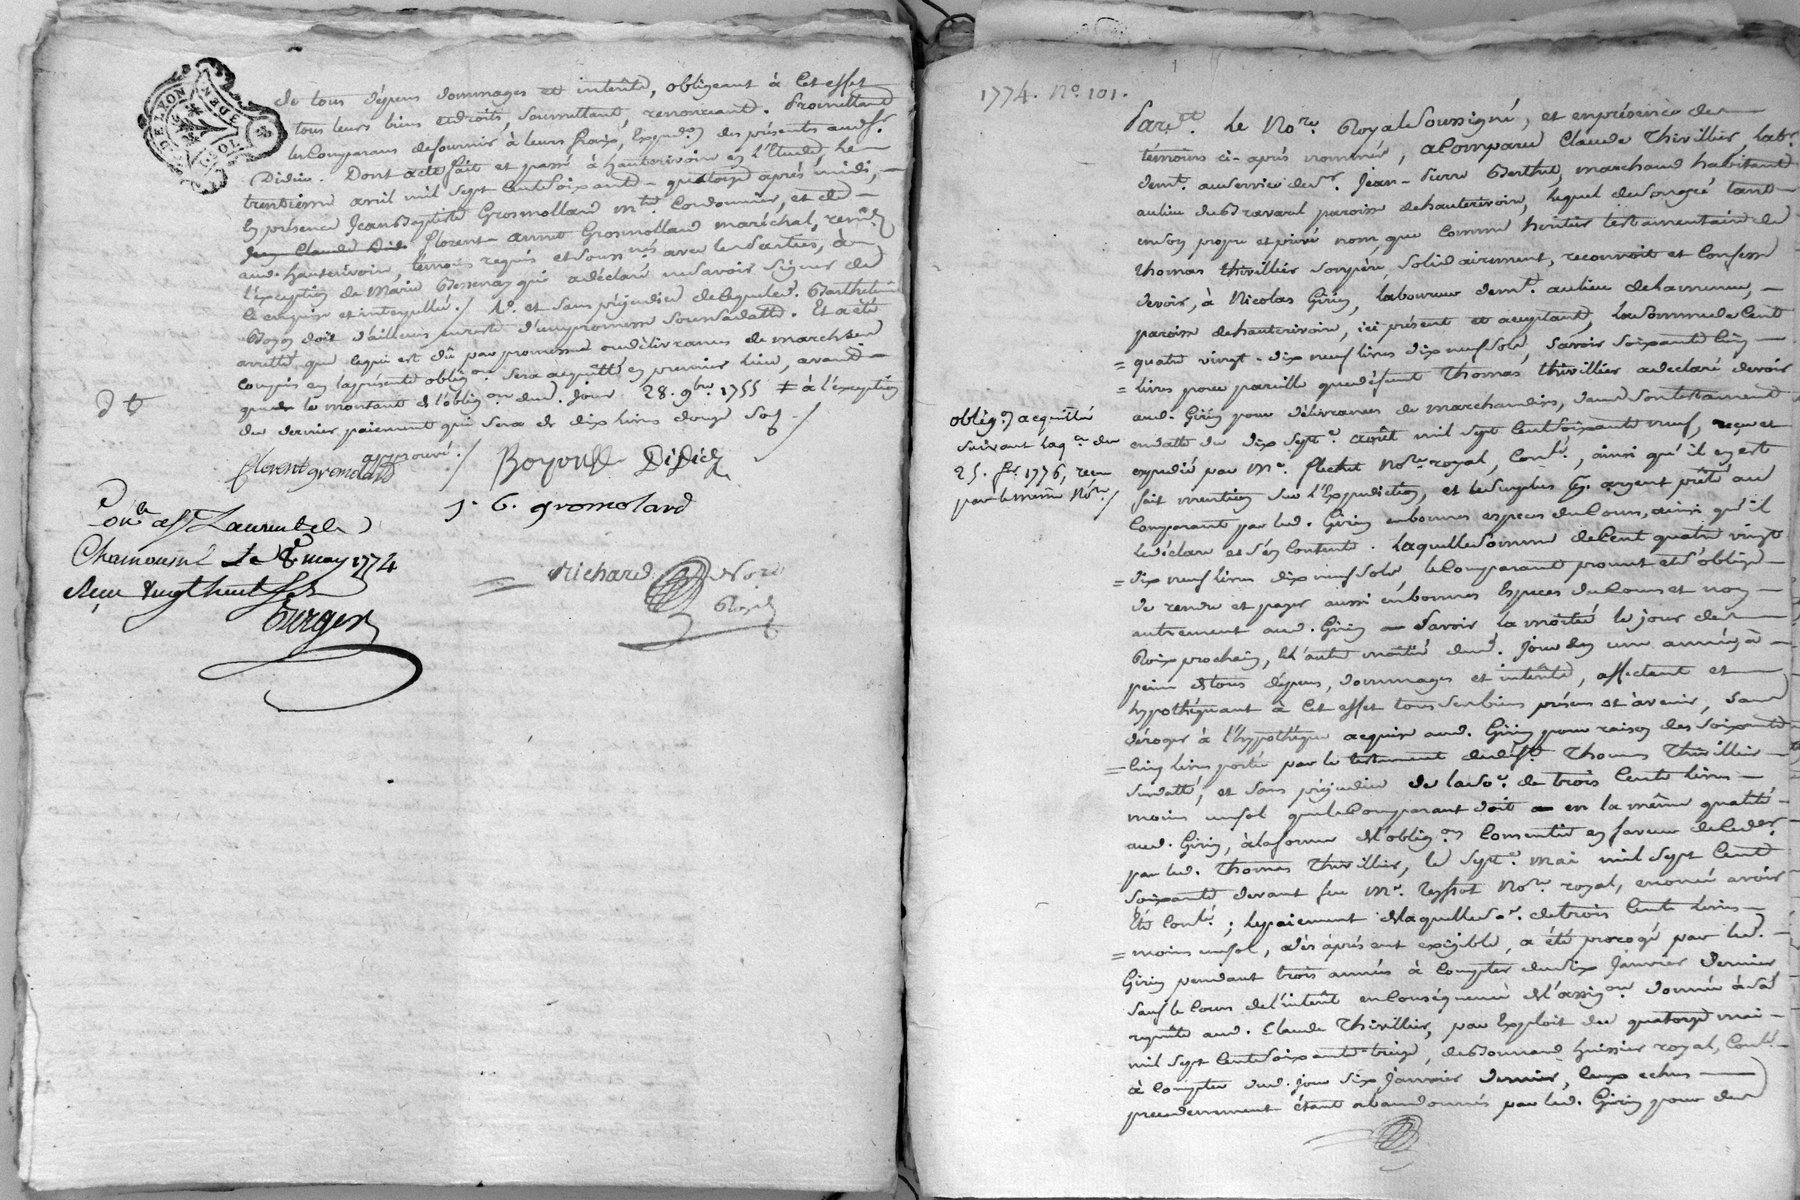 de tous dépens dommages et intérêts, obligeant à cet effet
tous leurs biens et droits, soumettant, renonceant. Promettant
les comparans de fournir à leurs fraix, Expedᵒⁿ des présents audsʳ.
Didier. Dont acte fait et passé à hauterivoire en l'Etude le
trentieme avril mil sept cent soixante-quatorze après midi,
En présence Jean Baptiste Grosmollard mᵗʳᵉ Cordonnier, et de
Jean Claude Didi florent annet Grosmollard maréchal,
aud. hauterivoire, témoins requis et soussⁿᵉˢ avec les parties, à
l'Exception de Marie Bessenay qui a déclaré ne savoir signer de
ce enquise et interpellée./. et sans préjudice de ce que led. Barthelemi
Boyou doit d'ailleurs en reste d'une promesse sous sa datte. Et a été
arretté que ce qui est dû par promesse ou délivrance de marchses
compris en la présente obligᵒⁿ sera acquitté en premier lieu, avant
que le montant de l'obligᵒⁿ dud. jour 28. 9bre 1755 ‡ à l'exception
du dernier paiement qui sera de dix livres douze sols ./
approuvé ./
florent gromolard Boyou DiDiEr
J. b. gromolard
Conᵗˡᵉ a Sᵗ Laurent de
Chamousset Le 8 may 1774
Reçu vingt huit sols
Burger
Richard Nore
Royal
1774. Nº. 101.
Parᵈᵗ. le Noʳᵉ Royal Soussigné, et en présence des
témoins ci-après nommés, a Comparu Claude Thivillier, labʳ
demᵗ. au service de sʳ. Jean-Pierre Berthet, marchand habitant
au lieu du Bravard paroisse de hauterivoire, lequel de son gré tant
en son propre et privé nom, que comme héritier testamentaire de
thomas thivillier son père, solidairement, reconnoit et Confesse
devoir, à Nicolas Girin, laboureur demᵗ. au lieu de
paroisse de hauterivoire, ici présent et acceptant, la somme de Cent
= quatre vingt-dix neuf livres dix neuf sols, savoir soixante Cinq
= livres pour pareille que défunt Thomas thivillier a déclaré devoir
aud. Girin pour délivrances de marchandises, dans son testament
en datte du dix septᵉ. août mil sept Cent soixante neuf, reçu et
expédié par Mᵉ. flechet Noʳᵉ royal, Contˡé, ainsi qu'il en est
fait mention sur l'Expédition, et le surplus en argent prêté au
Comparant par led. Girin en bonnes especes du Cours, ainsi qu'il
le déclare et s'en Contente. Laquelle somme de Cent quatre vingt
= dix neuf livres dix neuf sols le Comparant promet et s'oblige
de rendre et payer aussi en bonnes Especes du Cours et non
autrement aud. Girin savoir la moitié le jour des
Rois prochain, et l'autre moitié dud. jour en une année, à
peine de tous dépens, dommages et intérêts, affectant et
hypothéquant à Cet effet tous ses biens présens et à venir, sans
déroger à l'hypothèque acquise aud. Girin pour raison des soixante
= Cinq livres portées par le testament dud. déft. Thomas Thivillier
susdatté, et sans préjudice de la soᵉ de trois Cents livres
moins un sol que le Comparant doit en la même qualité
aud. Girin, à la forme de l'obligᵒⁿ Consentie en faveur de ce der
par led. Thomas Thivillier, le septᵉ. mai mil sept Cent
soixante devant feu Mᵉ. Noʳᵉ royal, énoncée avoir
été Contˡée; le paiement de laquelle soᵉ. de trois Cents livres
= moins un sol, dès àprésent exigible, a été prorogé par led.
Girin pendant trois années à Compter du six Janvier dernier
sauf le Cours de l'intérêt en Conséquence de l'assigᵒⁿ donnée à sa
requête aud. Claude Thivillier, par Exploit du quatorze mai
mil sept Cent soixante-treize, de Bonnand huissier royal, Contˡé
à Compter dud. jour six Janvier dernier, Ceux echus
precedemment étant abandonnés par led. Girin pour des
obligᵒⁿ acquittée
suivant la qᶜᵉ du
25. fᵉʳ. 1776, reçue
par le même Noʳᵉ ./